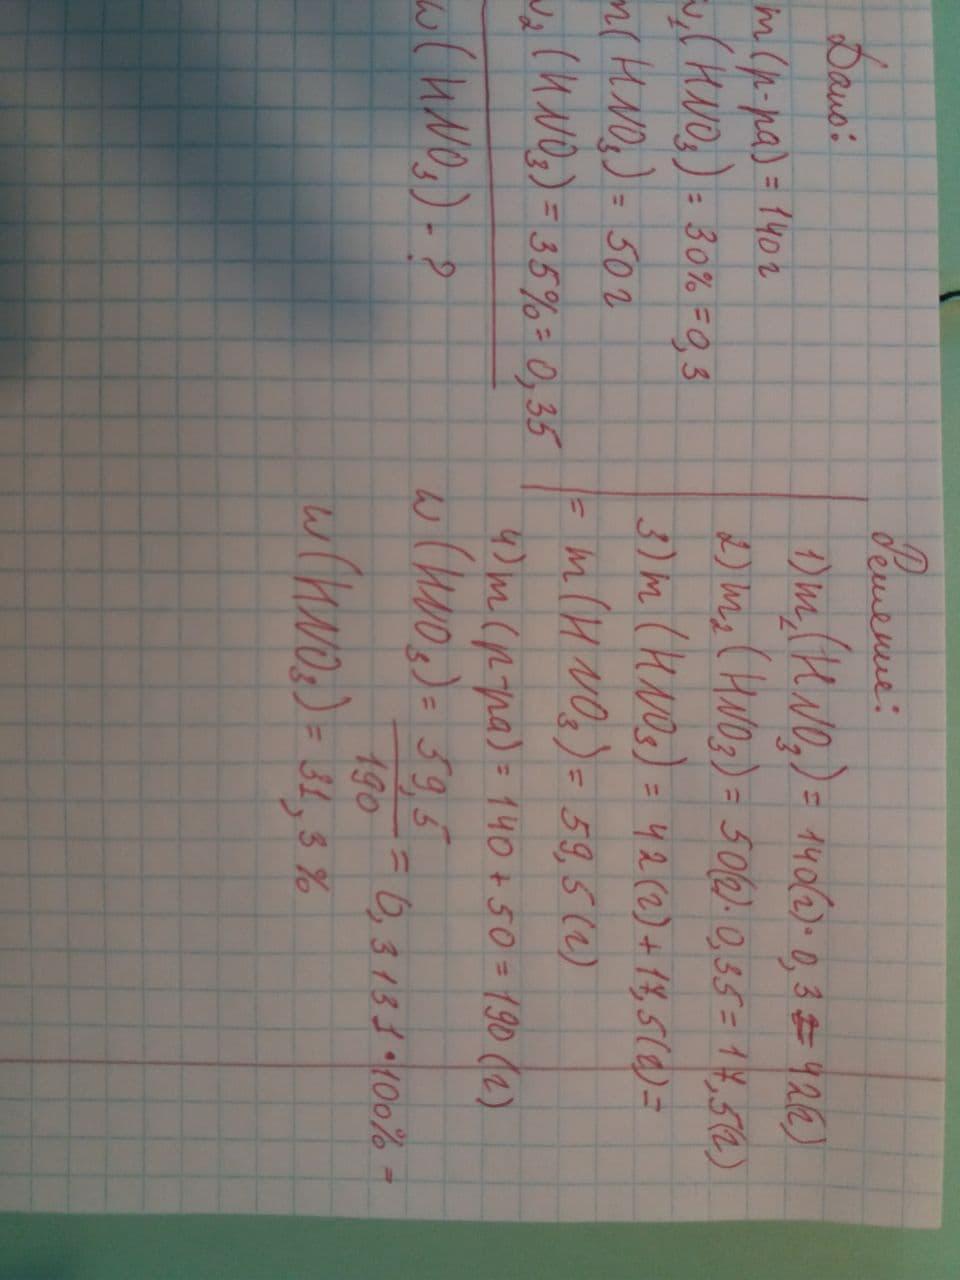 Дано:
m(р-ра) = 140г
w₁(HNO₃) = 30% = 0,3
m(HNO₃) = 50г
w₂(HNO₃) = 35% = 0,35
w(HNO₃) - ?
Решение:
1) m₁(HNO₃) = 140(г)·0,3 = 42(г)
2) m₂(HNO₃) = 50(г)·0,35 = 17,5(г)
3) m(HNO₃) = 42(г) + 17,5(г) =
= m(HNO₃) = 59,5(г)
4) m(р-ра) = 140 + 50 = 190(г)
w(HNO₃) = 59,5/190 = 0,3131·100% =
w(HNO₃) = 31,3%